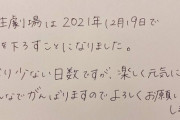 生劇場は2021年12月19日で
下ろすことになりました。
り少ない日数ですが、楽しく元気に
んなでがんばりますのでよろしくお願い
し